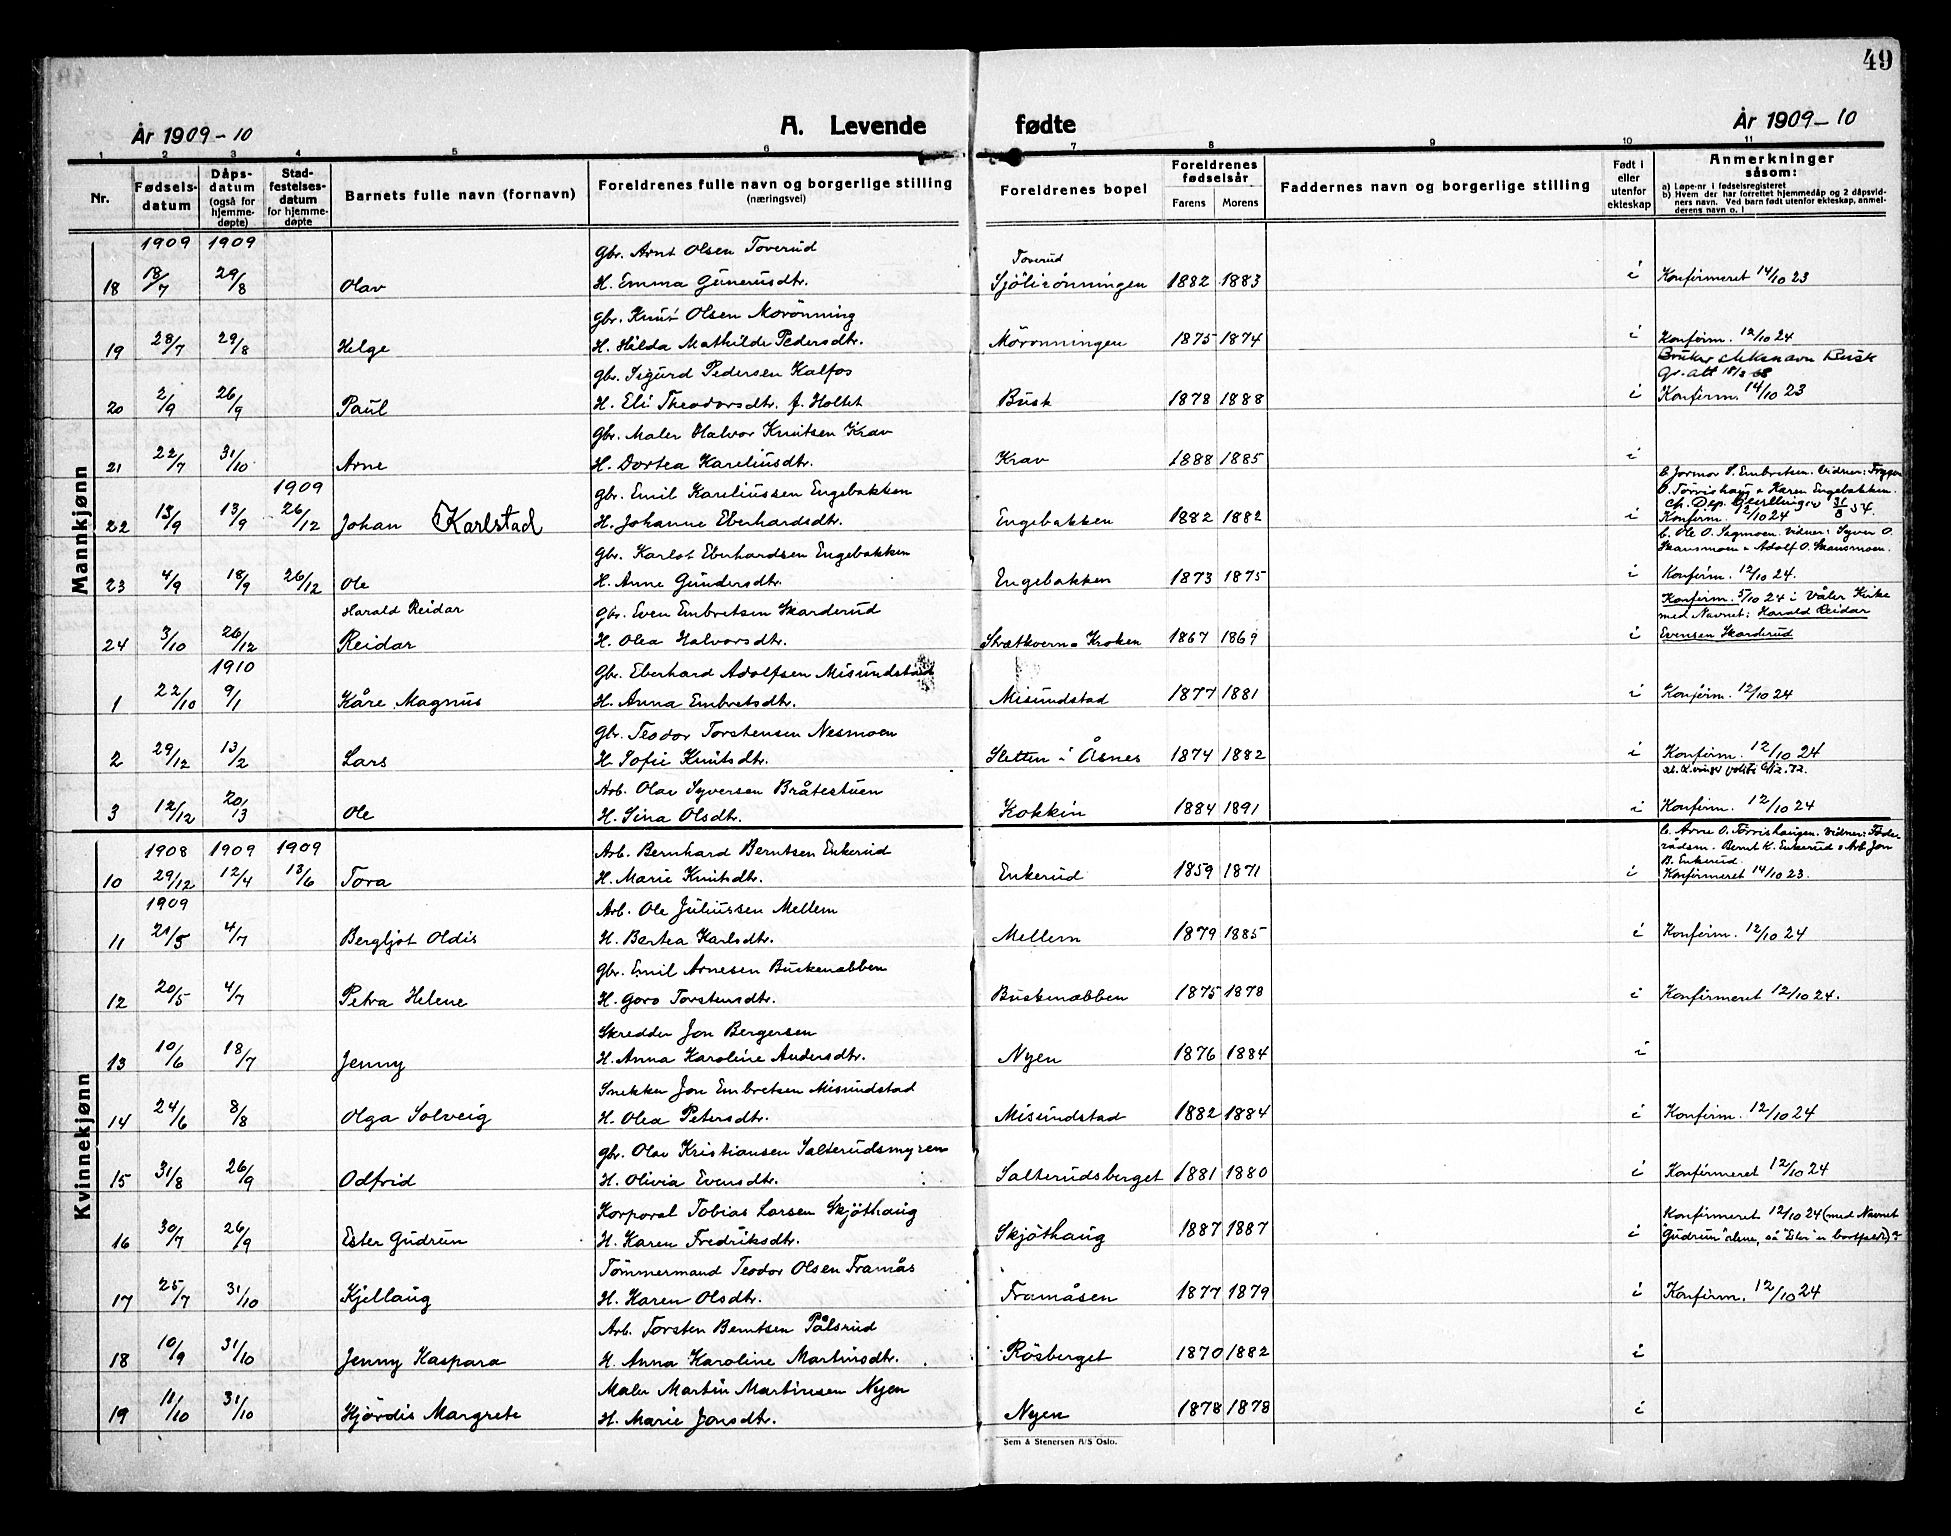 49
År 1909-10
A. Levende fødte
År 1909-10
1 2 3 4 5 6 7 8 9 10 11
Nr.
Fødsels-datum
Dåps-datum (også for hjemme-døpte)
Stad-festelses-datum for hjemme-døpte
Barnets fulle navn (fornavn)
Foreldrenes fulle navn og borgerlige stilling (næringsvei)
Foreldrenes bopel
Foreldrenes fødselsår
Farens Morens
Faddernes navn og borgerlige stilling
Født i eller utenfor ekteskap
Anmerkninger såsom:
a) Løpe-nr i fødselsregisteret
b) Hvem der har forrettet hjemmedåp og 2 dåpsvid-
ners navn. Ved barn født utenfor ekteskap, anmel-
derens navn o. l
Mannkjønn
1909 1909 Gbr. Arnt Olsen Toverud Toverud
18 18/7 29/8 Olav H. Emma Gunerusdtr. Sjölirönningen 1882 1883 i Konfirmeret 14/10 23
Gbr. Knut Olsen Morönning
19 28/7 29/8 Helge H. Hilda Mathilde Pedersdtr. Mörönningen 1875 1874 i Konfirm. 12/10 24
Gbr. Sigurd Pedersen Kalfos Bruker slektsnavn Busk
20 2/9 26/9 Paul H. Eli Theodorsdtr. f. Holtet Busk 1878 1888 i Konfirm. 14/10 23
Gbr. Maler Halvor Knutsen Krav
21 22/7 31/10 Arne H. Dortea Kareliusdtr. Krav 1888 1885 i
1909 Gbr. Emil Kareliussen Engebakken O. Törrishaug & Karen Engebakken.
22 13/9 13/9 26/12 Johan Karlstad H. Johanne Eberhardsdtr. Engebakken 1882 1882 i Konfirm. 12/10 24
Gbr. Karlot Eberhardsen Engebakken Skansmoen & Adolf O. Skansmoen.
23 4/9 18/9 26/12 Ole H. Anne Gundersdtr. Engebakken 1873 1875 i Konfirm. 12/10 24.
Harald Reidar Gbr. Even Embretsen Skarderud Konfirm. 5/10 24 i Våler Kirke
med Navnet: Harald Reidar
24 3/10 26/12 Reidar H. Olea Halvorsdtr. Strætkvern & Kroken 1867 1869 i Evensen Skarderud
1910 Gbr. Eberhard Adolfsen Misundstad
1 22/10 9/1 Kåre Magnus H. Anna Embretsdtr. Misundstad 1877 1881 i Konfirm. 12/10 24
Gbr. Teodor Torstensen Nesmoen
2 29/12 13/2 Lars H. Sofie Knutsdtr. Sletten i Åsnes 1874 1882 i Konfirm. 12/10 24
Arb. Olav Syversen Bråtestuen
3 12/12 20/3 Ole H. Sina Olsdtr. Kokkin 1884 1891 i Konfirm. 12/10 24
Kvinnekjønn
1908 1909 1909 Arb. Bernhard Berntsen Enkerud b. Arne O. Törrishaugen. Vidner: Føde-
rådsm. Bernt K. Enkerud & Arb. Jon
B. Enkerud
10 29/12 12/4 13/6 Tora H. Marie Knutsdtr. Enkerud 1859 1871 i Konfirmeret 14/10 23.
1909 Arb. Ole Juliussen Mellem
11 21/5 4/7 Bergljot Oldis H. Bertea Karlsdtr. Mellem 1879 1885 i Konfirm. 12/10 24
Gbr. Emil Arnesen Buskenabben
12 20/5 4/7 Petra Helene H. Goro Torstensdtr. Buskenæbben 1875 1878 i Konfirmeret 12/10 24.
Skredder Jon Bergersen
13 10/6 18/7 Jenny H. Anna Karoline Andersdtr. Nyen 1876 1884 i
Snekker Jon Embretsen Misundstad
14 24/6 8/8 Olga Solveig H. Olea Petersdtr. Misundstad 1882 1884 i Konfirm. 12/10 24
Gbr. Olav Kristiansen Salterudsmyren
15 31/8 26/9 Odfrid H. Olivia Evensdtr. Salterudsberget 1881 1880 i Konfirmeret 12/10 24
Korporal Tobias Larsen Skjöthaug Konfirmeret 12/10 24 (med Navnet
16 30/7 26/9 Ester Gudrun H. Karen Fredriksdtr. Skjöthaug 1887 1887 i "Gudrun" alene, så "Ester" er
Tömmermand Teodor Olsen Framås
17 25/7 31/10 Kjellaug H. Karen Olsdtr. Framåsen 1877 1879 i Konfirm. 12/10 24
Arb. Torsten Berntsen Pålsrud
18 10/9 31/10 Jenny Kaspara H. Anna Karoline Martinsdtr. Rösberget 1870 1882 i
Maler Martin Martinsen Nyen
19 11/10 31/10 Hjördis Margrete H. Marie Jonsdtr. Nyen 1878 1878 i
Sem & Stenersen A/S Oslo.